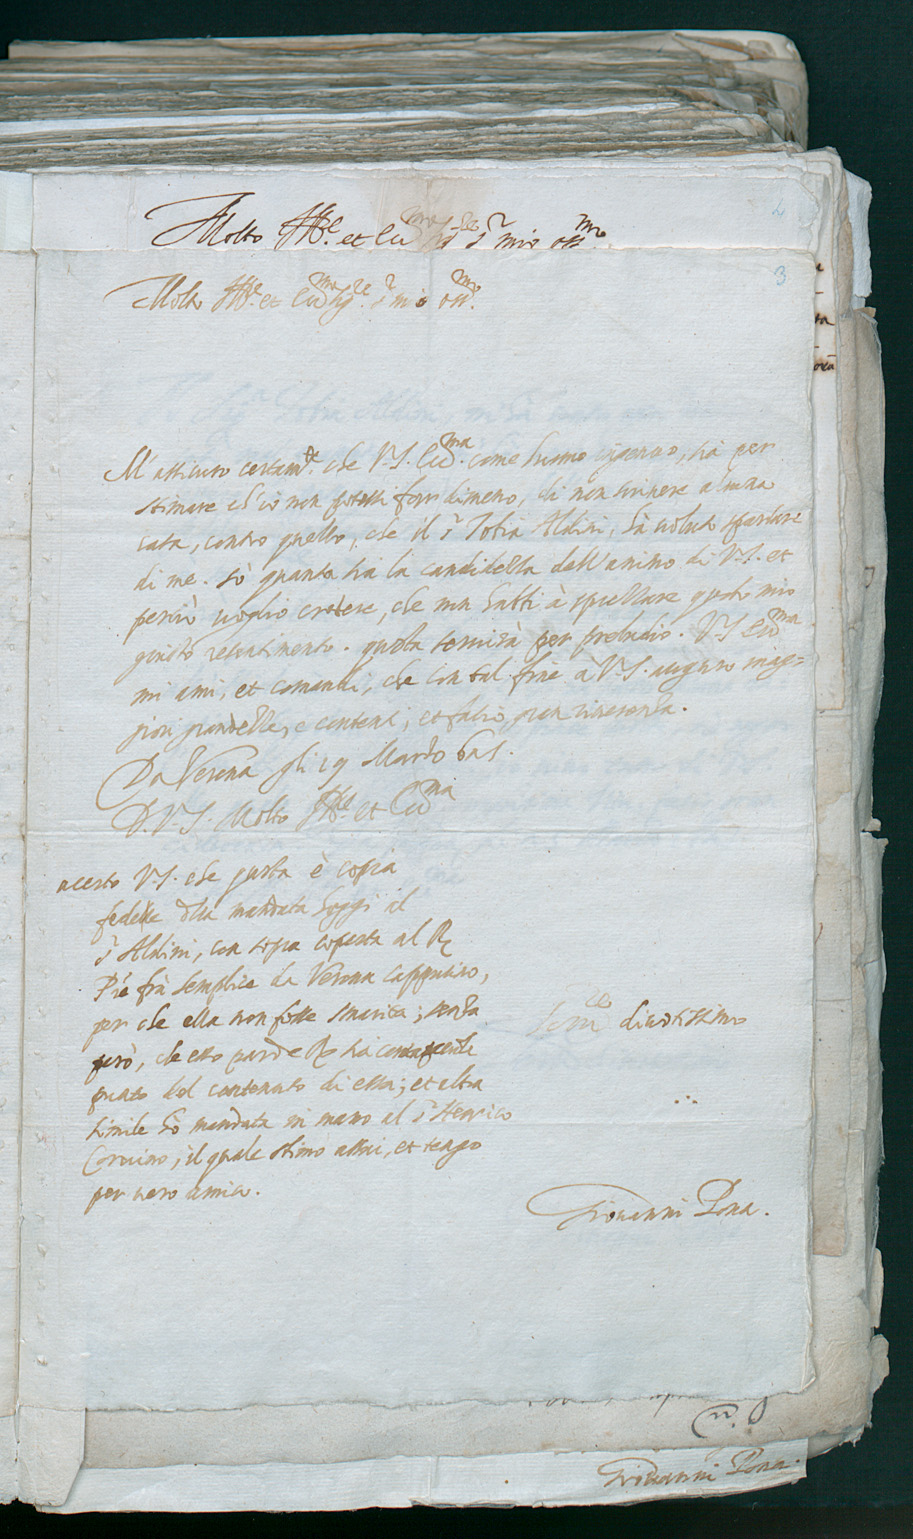 4
Molto Ill.re et Ecc.mo Sig.re S.r mio oss.mo
3
Molto Ill.re et Ecc.mo Sig.re S.r mio oss.mo
M'assicuro certam.te che V.S. Ecc.ma come huomo ingenuo, hà per
stimare ch'io non potessi far dimeno, di non scrivere alcuna
cosa, contro quello, che il S.r Tobia Aldini, hà voluto sparlare
di me. sò quanta sia la candidezza dell'animo di V.S. et
perciò voglio credere, che non habbi à spezzare questo mio
giusto resentimento. questa servirà per preludio. V.S. Ecc.ma
mi ami, et comandi, che con tal fine à V.S. auguro mag=
giori grandezze, e contenti, et faccio gran riverenza.
Da Verona gli 19 Marzo 625.
D.V.S. Molto Ill.re et Ecc.ma
acerto V.S. che questa è copia
fedele della mandata hoggi al
S.r Aldini, con sopra coperta al R.
P.re frà semplice da Verona cappucino,
per che ella non fosse smarita; senza
però, che esso padre R. sia
punto del contenuto di essa; et altra
simile hò mandata in mano al S.r Henrico
Corvino, il quale stimo assai, et tengo
per vero amico.
Ser.re divotissimo
Giovanni Pona.
Giovanni Pona.